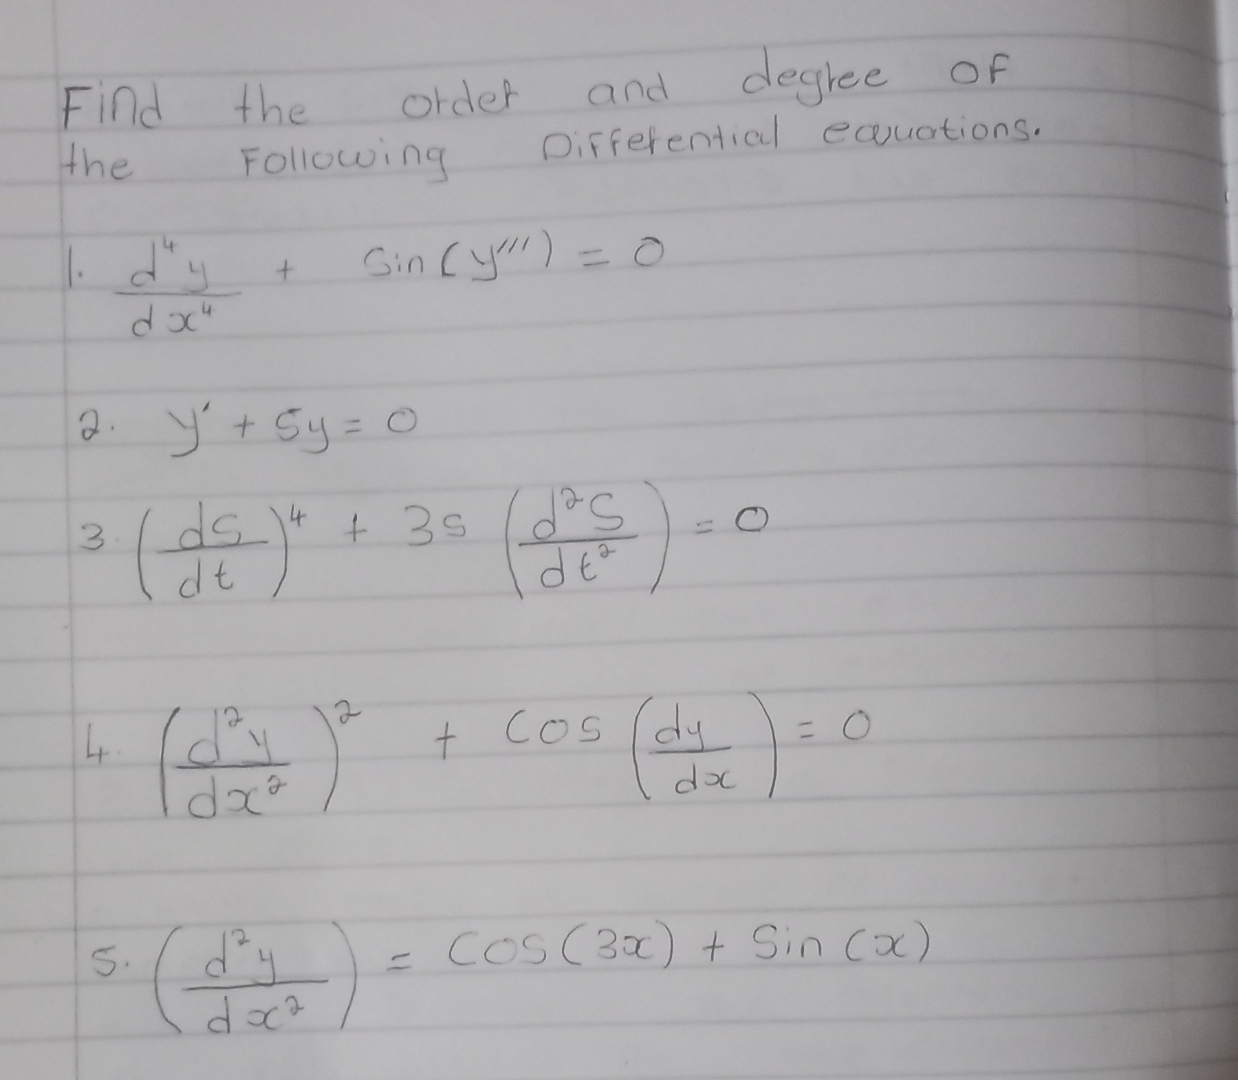 Find the order and degree of
the Following Differential equations.
1. d⁴y/dx⁴ + Sin(y''') = 0
2. y' + 5y = 0
3. (ds/dt)⁴ + 3s (d²s/dt²) = 0
4. (d²y/dx²)² + cos (dy/dx) = 0
5. (d²y/dx²) = cos(3x) + Sin(x)